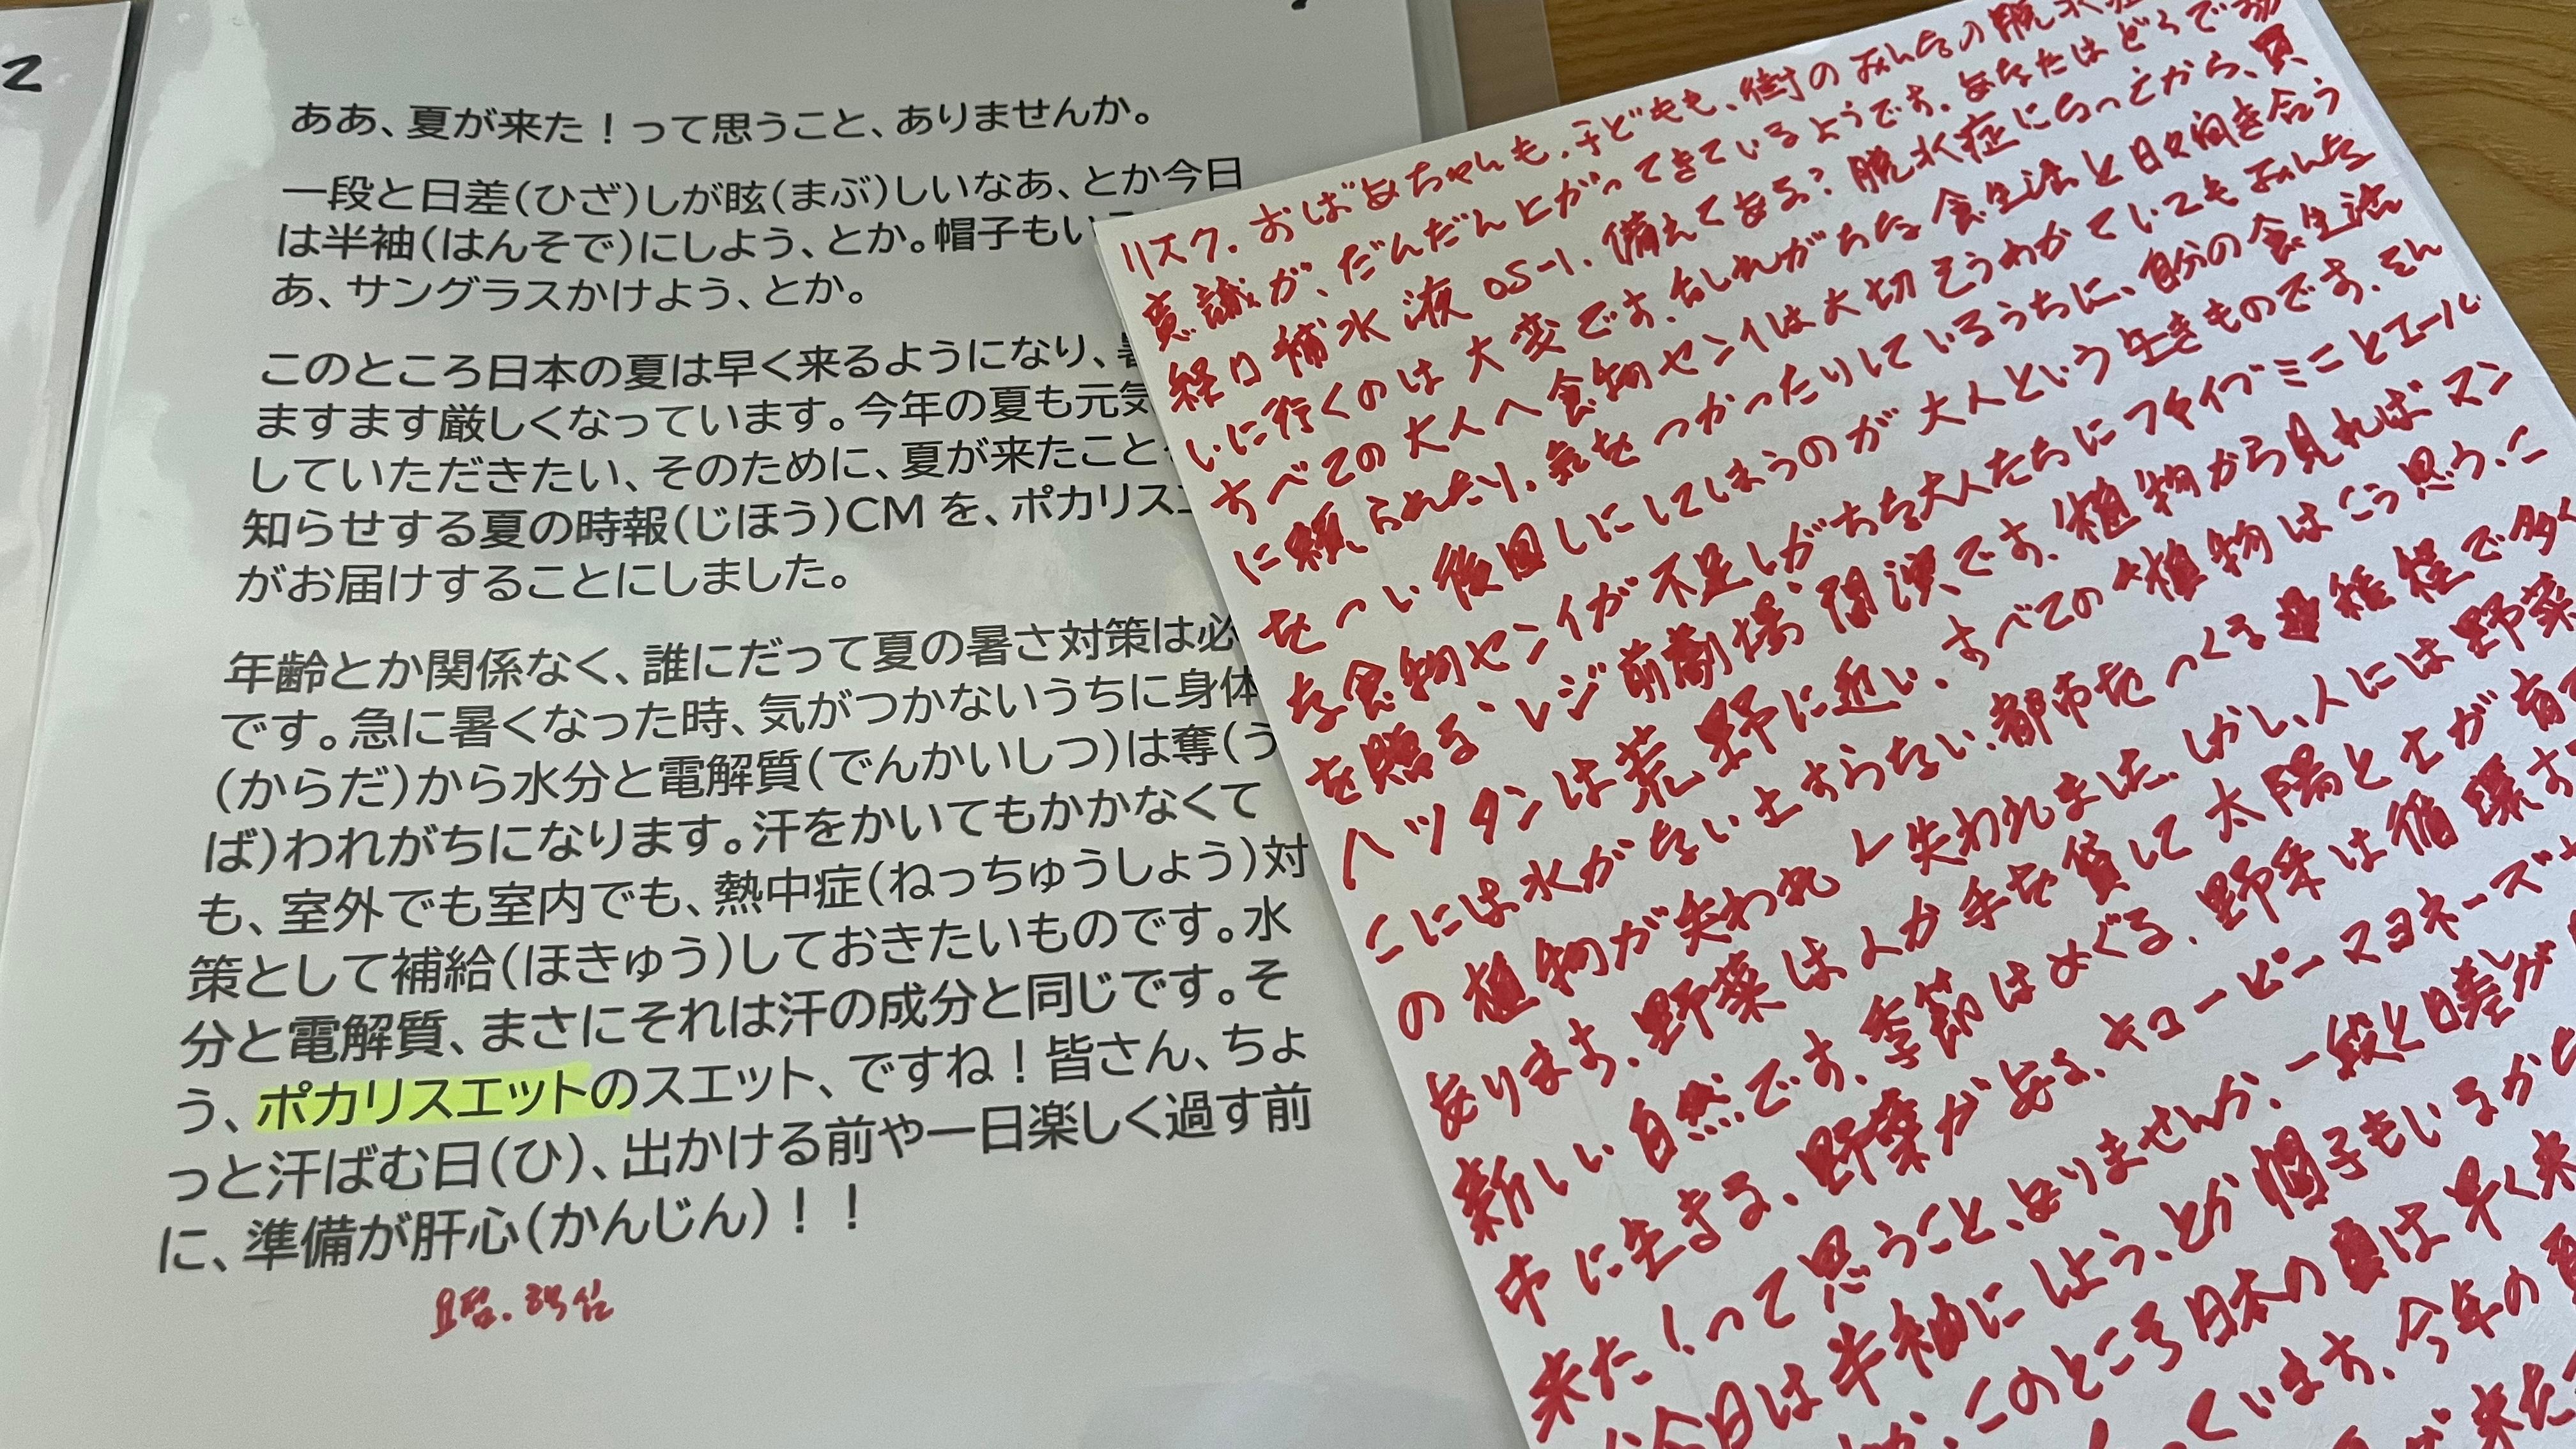 2
ああ、夏が来た！って思うこと、ありませんか。
一段と日差(ひざ)しが眩(まぶ)しいなあ、とか今日
は半袖(はんそで)にしよう、とか。帽子もい
あ、サングラスかけよう、とか。
このところ日本の夏は早く来るようになり、
ますます厳しくなっています。今年の夏も元気
していただきたい、そのために、夏が来たこと
知らせする夏の時報(じほう)CMを、ポカリスエ
がお届けすることにしました。
年齢とか関係なく、誰にだって夏の暑さ対策は必
です。急に暑くなった時、気がつかないうちに身体
(からだ)から水分と電解質(でんかいしつ)は奪(う
ば)われがちになります。汗をかいてもかかなくて
も、室外でも室内でも、熱中症(ねっちゅうしょう)対
策として補給(ほきゅう)しておきたいものです。水
分と電解質、まさにそれは汗の成分と同じです。そ
う、ポカリスエットのスエット、ですね！皆さん、ちょ
っと汗ばむ日(ひ)、出かける前や一日楽しく過す前
に、準備が肝心(かんじん)！！
요점. 핵심
おばあちゃんも、子どもも、街のみんなの脱水症
リスク.
意識が、だんだんとがってきているようです。あなたはどうですか
経口補水液OS-1、備えてある？脱水症になってから、買
いに行くのは大変です。乱れがちな食生活と日々向き合う
すべての大人へ食物センイは大切そうわかていてもみんな
に頼られたり、気をつかったりしているうちに、自分の食生活
をつい後回しにしてしまうのが大人という生きものです。そん
な食物センイが不足しがちな大人たちにファイブミニとエール
を贈る"レジ前劇場"開演です。植物から見ればマン
ハッタンは荒野に近い、すべての植物はこう思う、こ
こには水がない土すらない、都市をつくる過程で多く
の植物が失われ失われました。しかし、人には野菜
あります、野菜は人が手を貸して太陽と土が育
新しい自然です。季節はめぐる、野菜は循環す
中に生きる、野菜がある、キューピーマヨネーズ
来た！って思うこと、ありませんか、一段と日差しが
今日は半袖にしよう、とか帽子もいるかな
このところ日本の夏は早く来
くています、今年の夏
が来た